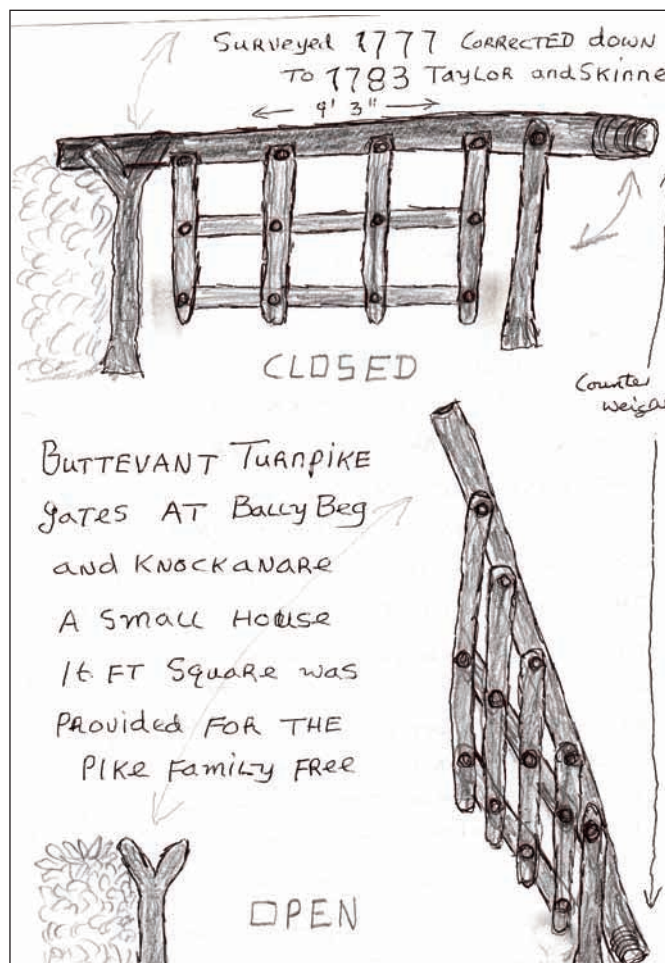 Surveyed 1777 Corrected down
To 1783 Taylor and Skinne
9' 3"
CLOSED
Counter
BUTTEVANT TURNPIKE
gates AT Bally Beg
and KNOCKANARE
A Small House
FT Square was
Provided FOR THE
PIKE Family Free
OPEN